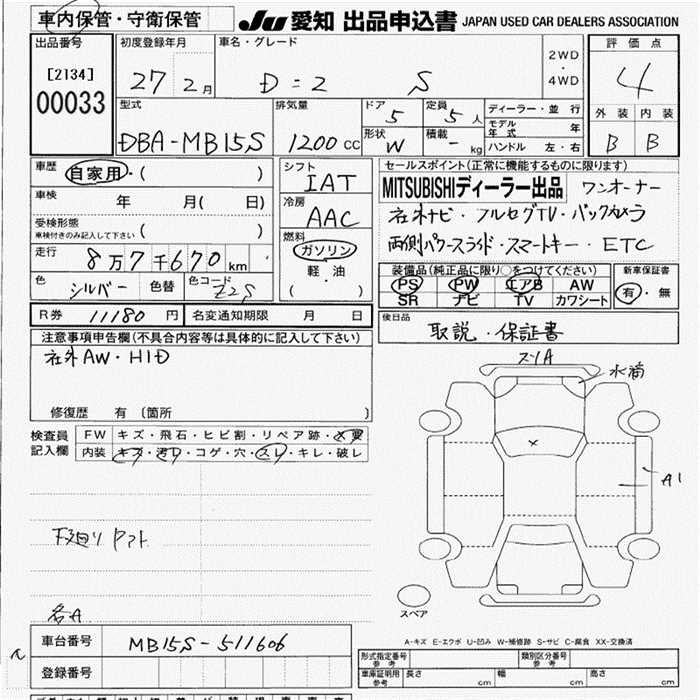 車内保管・守衛保管
JU 愛知 出品申込書 JAPAN USED CAR DEALERS ASSOCIATION
出品番号 初度登録年月 車名・グレード 2WD・4WD 評価点
[2134] 27 2月 D=2 S 4
00033
型式 排気量 ドア 定員 ディーラー・並行 外装 内装
DBA-MB15S 1200cc 5 5人 モデル年式 年 B B
形状 W 積載 - kg ハンドル 左・右
車歴 自家用・( )
シフト IAT
セールスポイント(正常に機能するものに限ります)
車検 年 月( 日)
冷房 AAC
MITSUBISHIディーラー出品 ワンオーナー
受検形態 ( )
車検付きのみ記入して下さい
社外ナビ・フルセグTV・バックカメラ
走行 8万7千670km
燃料 ガソリン
軽・油
( ・ )
両側パワースライド・スマートキー・ETC
色 シルバー 色替 色コード Z2S
装備品(純正品に限り○をつけてください) 新車保証書
PS PW エアB AW 有・無
SR ナビ TV カワシート
R券 11180円 名変通知期限 月 日
後日品 取説・保証書
注意事項申告欄(不具合内容等は具体的に記入して下さい)
社外AW・HID
修復歴 有〔箇所 〕
スリA
水滴
検査員記入欄 FW キズ・飛石・ヒビ割・リペア跡・X要
内装 キズ・汚レ・コゲ・穴・スレ・キレ・破レ
×
A1
下廻り
各A
スペア
A-キズ E-エクボ U-凹み W-補修跡 S-サビ C-腐食 XX-交換済
車台番号 MB15S-511606
登録番号
型式指定番号 参考 類別区分番号 参考
車庫証明用 参考 長さ cm 幅 cm 高さ cm